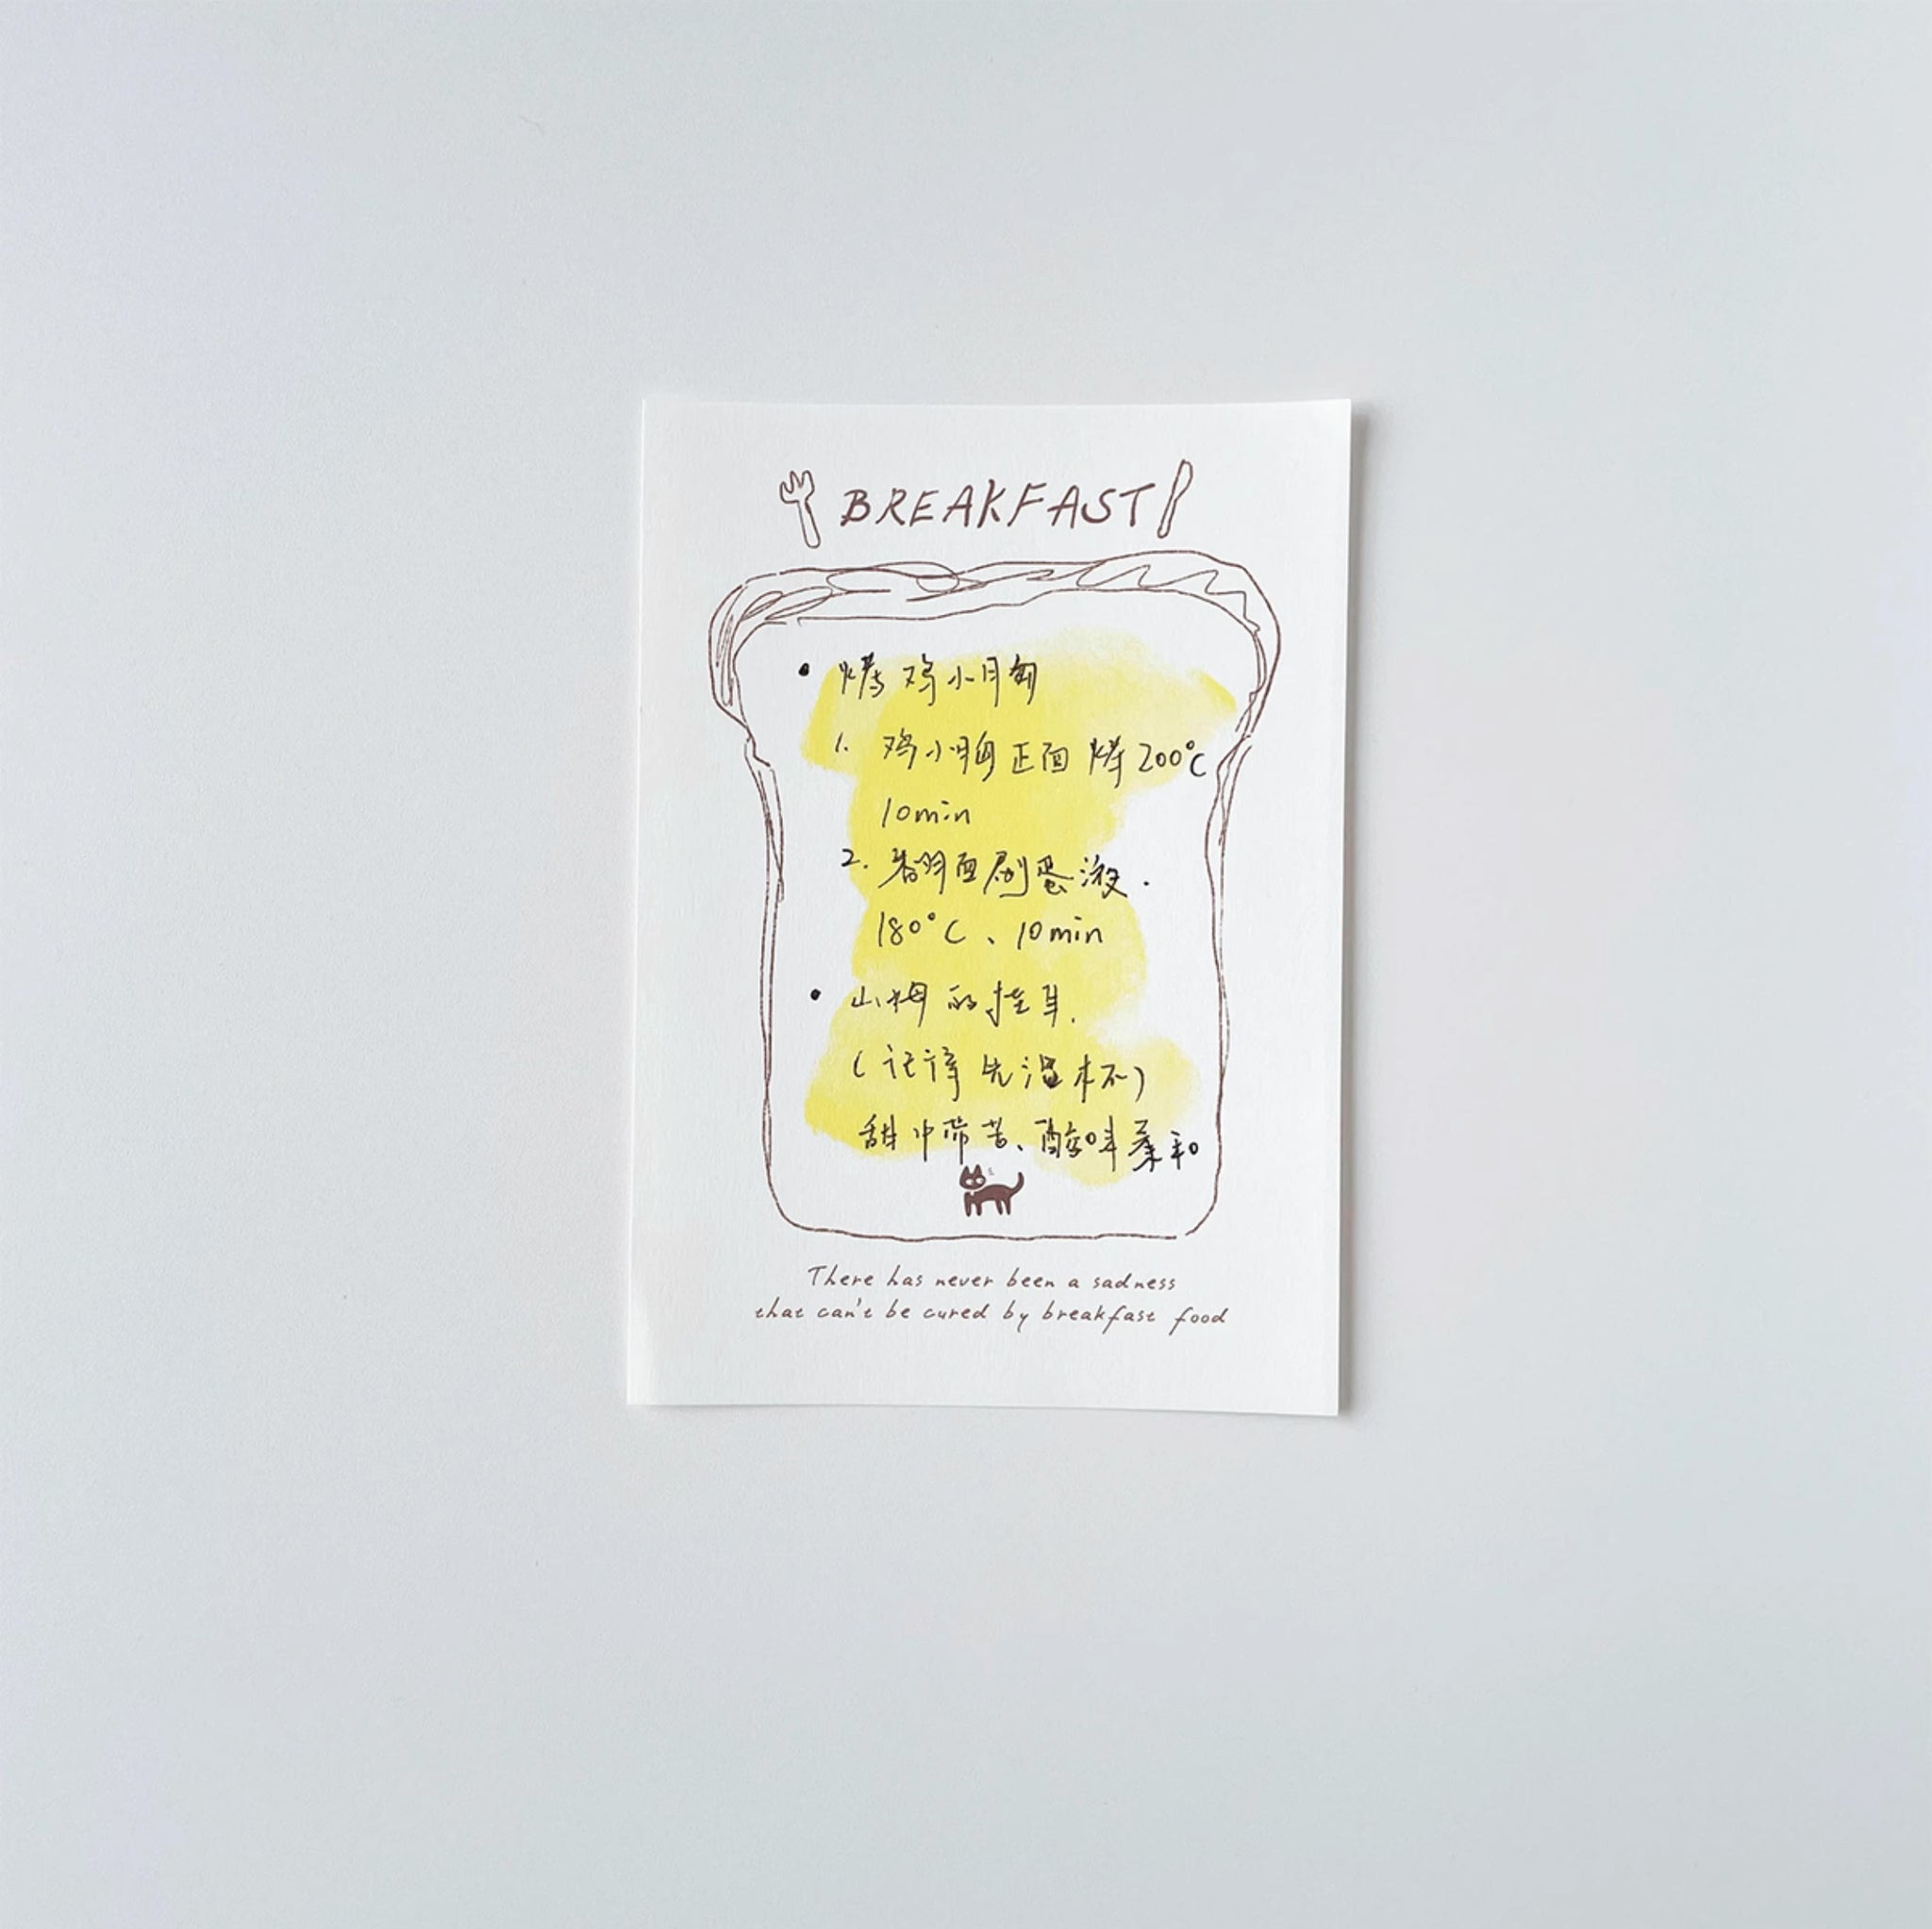 BREAKFAST
• 烤鸡小胸
1. 鸡小胸正面烤200℃
10min
2. 翻面刷蛋液.
180℃、10min
• 山姆的挂耳.
(记得先温杯)
甜中带苦、酸味柔和
There has never been a sadness
that can't be cured by breakfast food